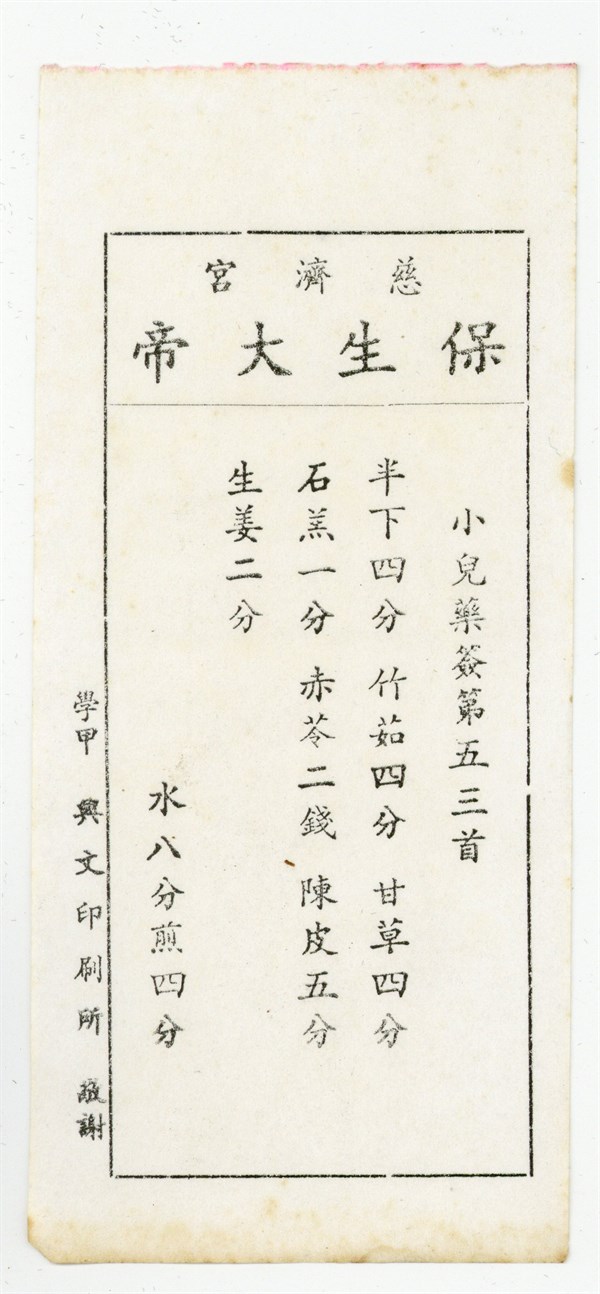 慈濟宮
保生大帝
小兒藥簽第五三首
半下四分 竹茹四分 甘草四分
石羔一分 赤苓二錢 陳皮五分
生姜二分
水八分煎四分
學甲 興文印刷所 敬謝